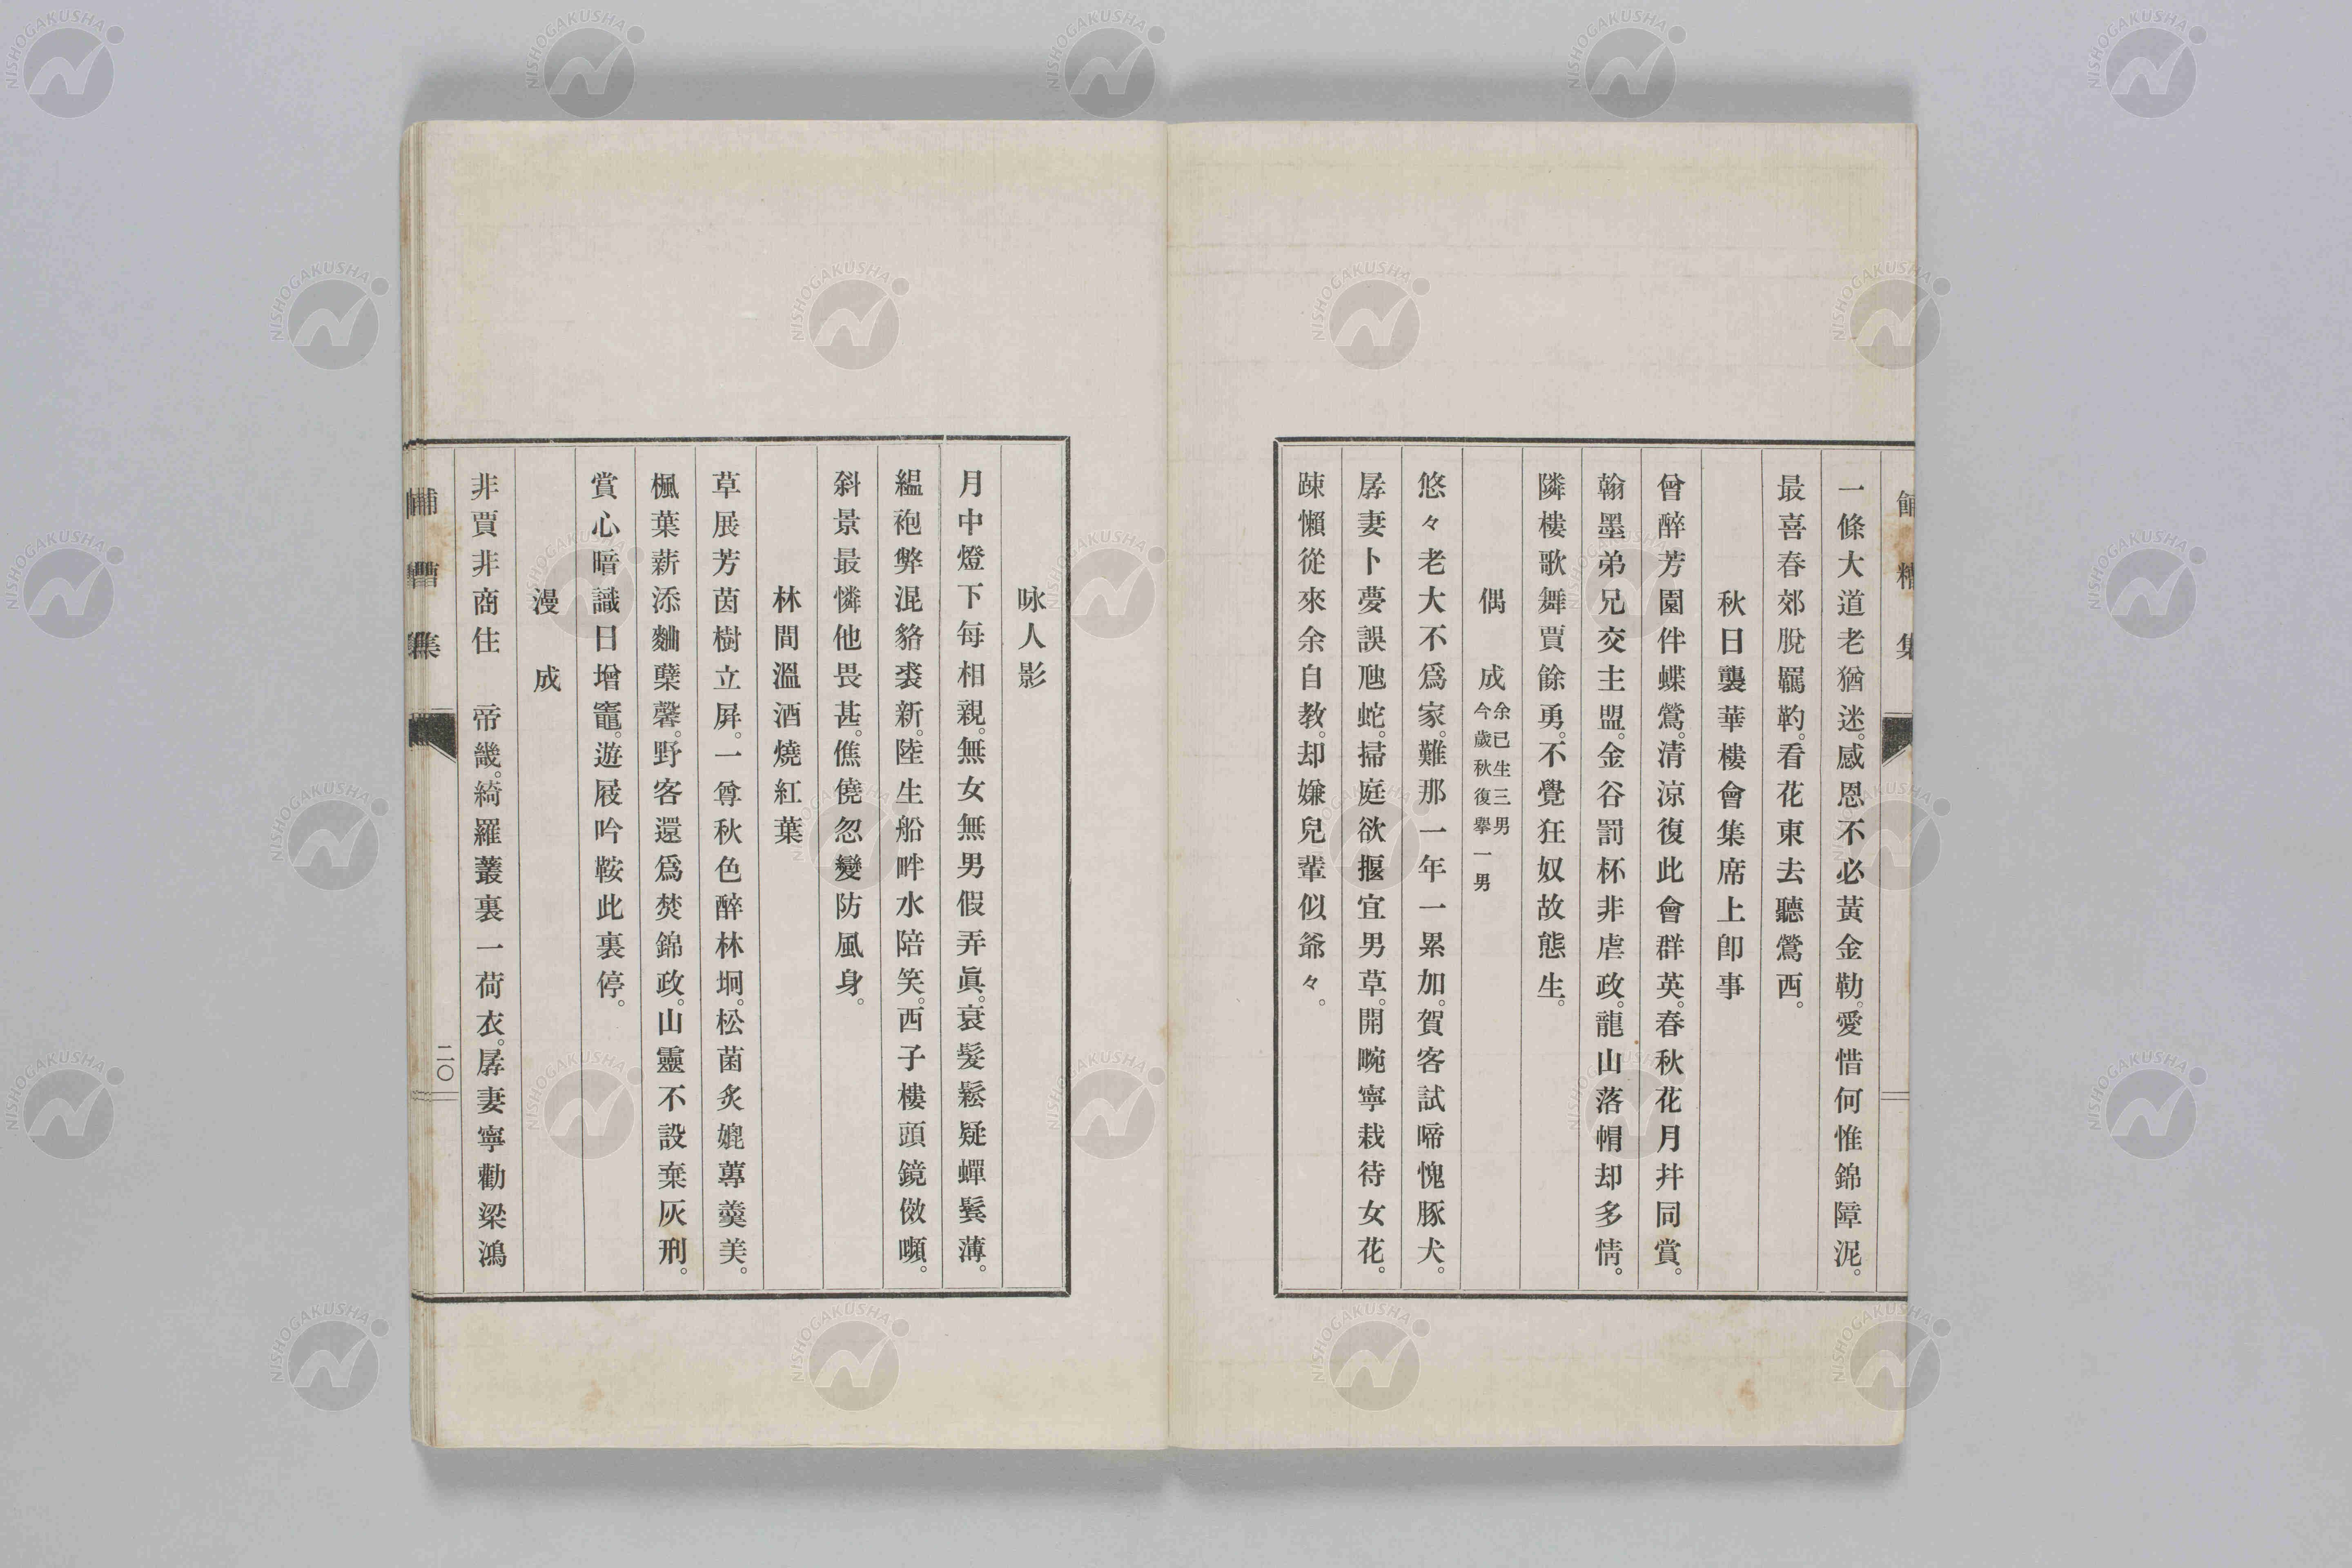 餔糟集
一條大道老猶迷。感恩不必黃金勒。愛惜何惟錦障泥。
最喜春郊脫羈靮。看花東去聽鶯西。
秋日襲華樓會集席上卽事
曾醉芳園伴蝶鶯。清涼復此會群英。春秋花月幷同賞。
翰墨弟兄交主盟。金谷罰杯非虐政。龍山落帽却多情。
隣樓歌舞賈餘勇。不覺狂奴故態生。
偶成 余已生三男今歲秋復擧一男
悠々老大不爲家。難那一年一累加。賀客試啼愧豚犬。
孱妻卜夢誤虺蛇。掃庭欲揠宜男草。開畹寧栽待女花。
踈懶從來余自教。却嫌兒輩似爺々。
咏人影
月中燈下每相親。無女無男假弄眞。衰髮鬆疑蟬鬢薄。
縕袍弊混貉裘新。陸生船畔水陪笑。西子樓頭鏡傚嚬。
斜景最憐他畏甚。僬僥忽變防風身。
林間溫酒燒紅葉
草展芳茵樹立屛。一尊秋色醉林坰。松菌炙媲蓴羹美。
楓葉薪添麯櫱馨。野客還爲焚錦政。山靈不設棄灰刑。
賞心暗識日增竈。遊屐吟鞍此裏停。
漫成
非賈非商住 帝畿。綺羅叢裏一荷衣。孱妻寧勸梁鴻
餔糟集
二〇
NISHOGAKUSHA